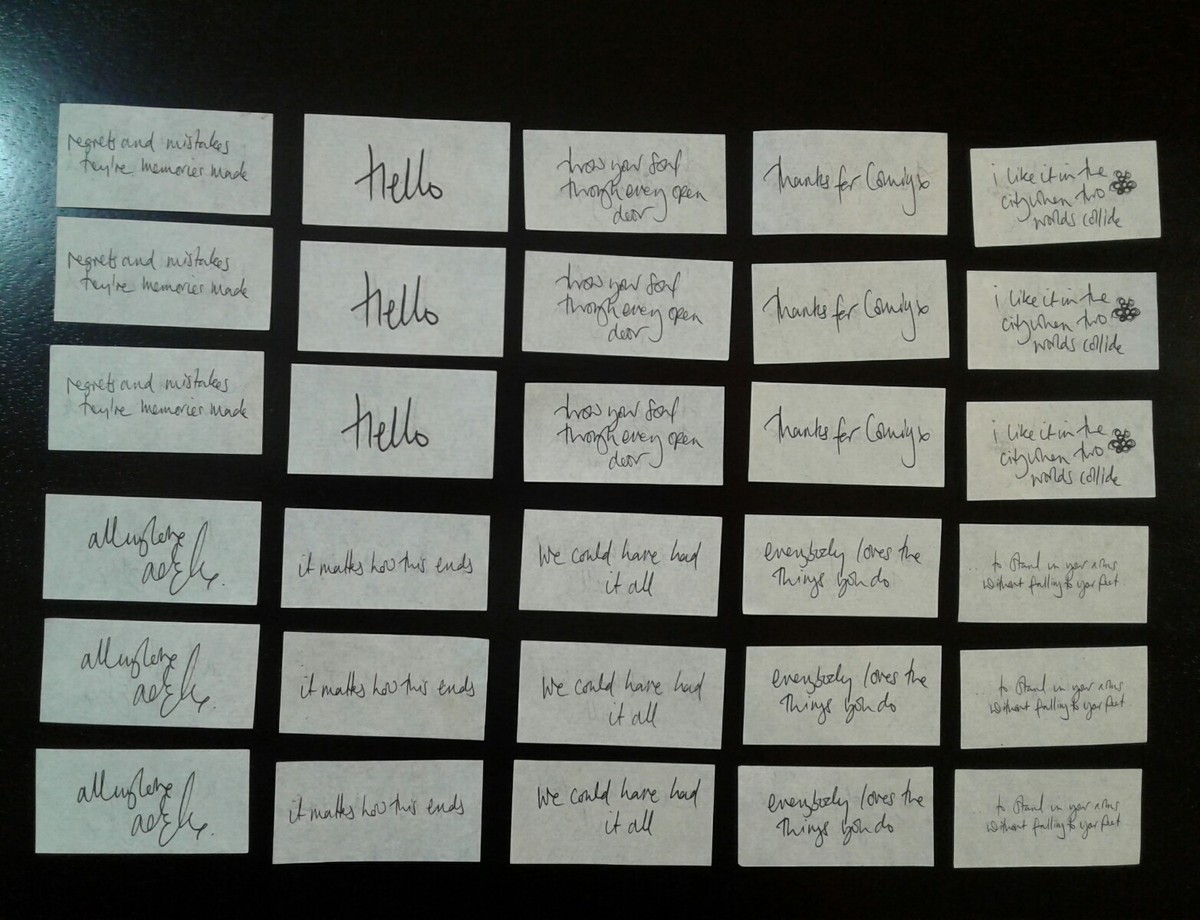 regrets and mistakes
they're memories made
Hello
throw your soul
through every open
door
thanks for coming x
i like it in the
city when two
worlds collide
regrets and mistakes
they're memories made
Hello
throw your soul
through every open
door
thanks for coming x
i like it in the
city when two
worlds collide
regrets and mistakes
they're memories made
Hello
throw your soul
through every open
door
thanks for coming x
i like it in the
city when two
worlds collide
all my love
adele x
it matters how this ends
We could have had
it all
everybody loves the
things you do
to stand in your arms
without falling to your feet
all my love
adele x
it matters how this ends
We could have had
it all
everybody loves the
things you do
to stand in your arms
without falling to your feet
all my love
adele x
it matters how this ends
We could have had
it all
everybody loves the
things you do
to stand in your arms
without falling to your feet